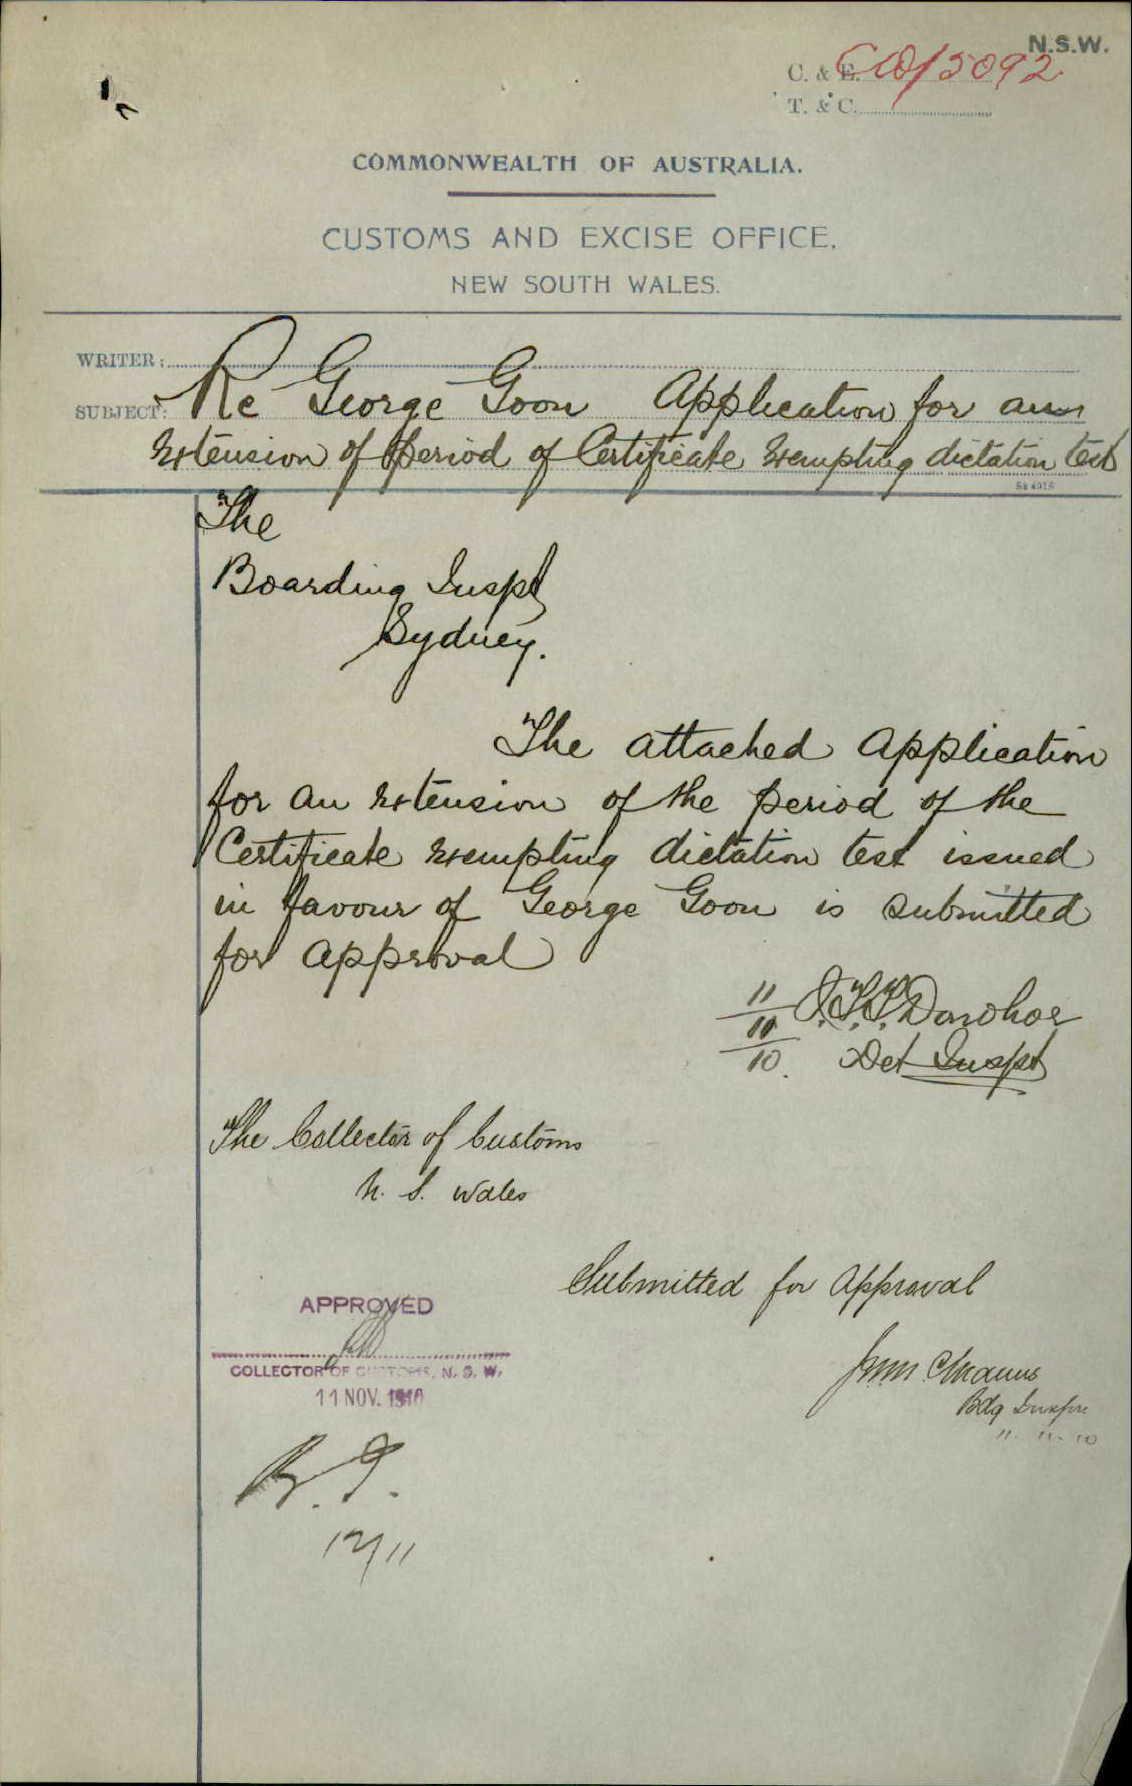 N.S.W.
C. & E. C10/5092
T. & C.
COMMONWEALTH OF AUSTRALIA.
CUSTOMS AND EXCISE OFFICE,
NEW SOUTH WALES.
WRITER:
SUBJECT: Re George Goon Application for an
Extension of Period of Certificate Exempting dictation test
The
Boarding Inspt
Sydney.
The attached Application
for an Extension of the period of the
Certificate Exempting dictation test issued
in favour of George Goon is submitted
for approval
11 J.T.T. Donohoe
10. Det Inspt
The Collector of Customs
N. S. Wales
Submitted for approval
APPROVED
COLLECTOR OF CUSTOMS, N. S. W.
11 NOV. 1910
Bdg
11. 11. 10
B. I.
12/11